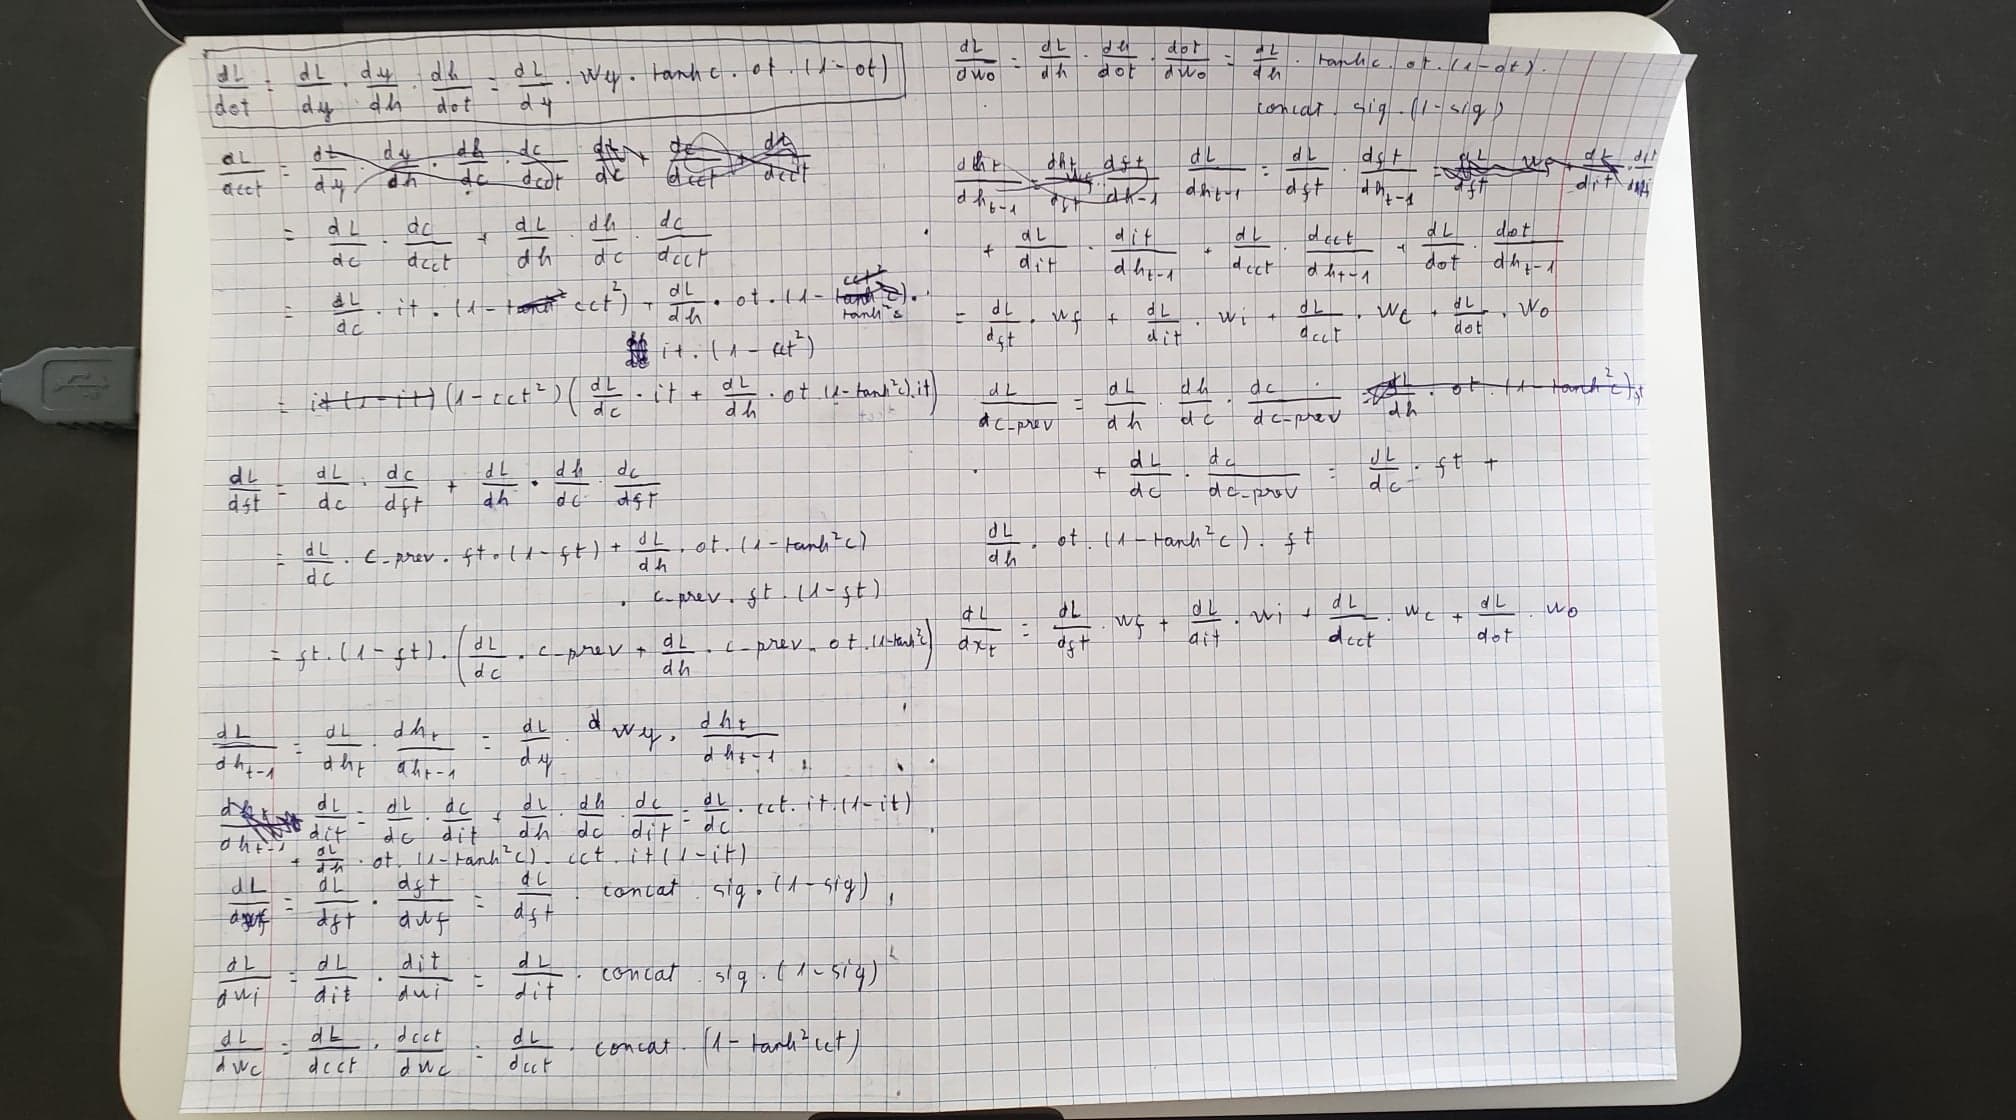 dL/dot = dL/dy · dy/dh · dh/dot = dL/dy · Wy · tanh c · ot · (1-ot)
dL/dcct =
= dL/dc · dc/dcct + dL/dh · dh/dc · dc/dcct
= dL/dc · it · (1- cct²) + dL/dh · ot · (1- tanh²c) ·
it · (1 - cct²)
= (1-cct²) (dL/dc · it + dL/dh · ot (1-tanh²c) · it)
dL/dft = dL/dc · dc/dft + dL/dh · dh/dc · dc/dft
= dL/dc · c-prev · ft · (1-ft) + dL/dh · ot · (1-tanh²c)
· c-prev · ft · (1-ft)
= ft · (1-ft) · (dL/dc · c-prev + dL/dh · c-prev · ot · (1-tanh²)
dL/dh_t-1 = dL/dh_t · dh_t/dh_t-1 = dL/dy · d Wy · dh_t/dh_t-1
dL/dit = dL/dc · dc/dit + dL/dh · dh/dc · dc/dit = dL/dc · cct · it · (1-it)
+ dL/dh · ot · (1-tanh²c) · cct · it (1-it)
dL/dwf = dL/dft · dft/dwf = dL/dft · concat · sig · (1-sig)
dL/dwi = dL/dit · dit/dwi = dL/dit · concat · sig · (1-sig)
dL/dwc = dL/dcct · dcct/dwc = dL/dcct · concat · (1- tanh² cct)
dL/dwo = dL/dh · dh/dot · dot/dwo = dL/dh · tanh c · ot · (1-ot) ·
concat · sig · (1-sig)
dL/dh_t-1 = dL/dft · dft/dh_t-1
+ dL/dit · dit/dh_t-1 + dL/dcct · dcct/dh_t-1 + dL/dot · dot/dh_t-1
= dL/dft · wf + dL/dit · wi + dL/dcct · wc + dL/dot · Wo
dL/dc-prev = dL/dh · dh/dc · dc/dc-prev
+ dL/dc · dc/dc-prev = dL/dc · ft +
dL/dh · ot · (1-tanh²c) · ft
dL/dx_t = dL/dft · wf + dL/dit · wi + dL/dcct · wc + dL/dot · wo